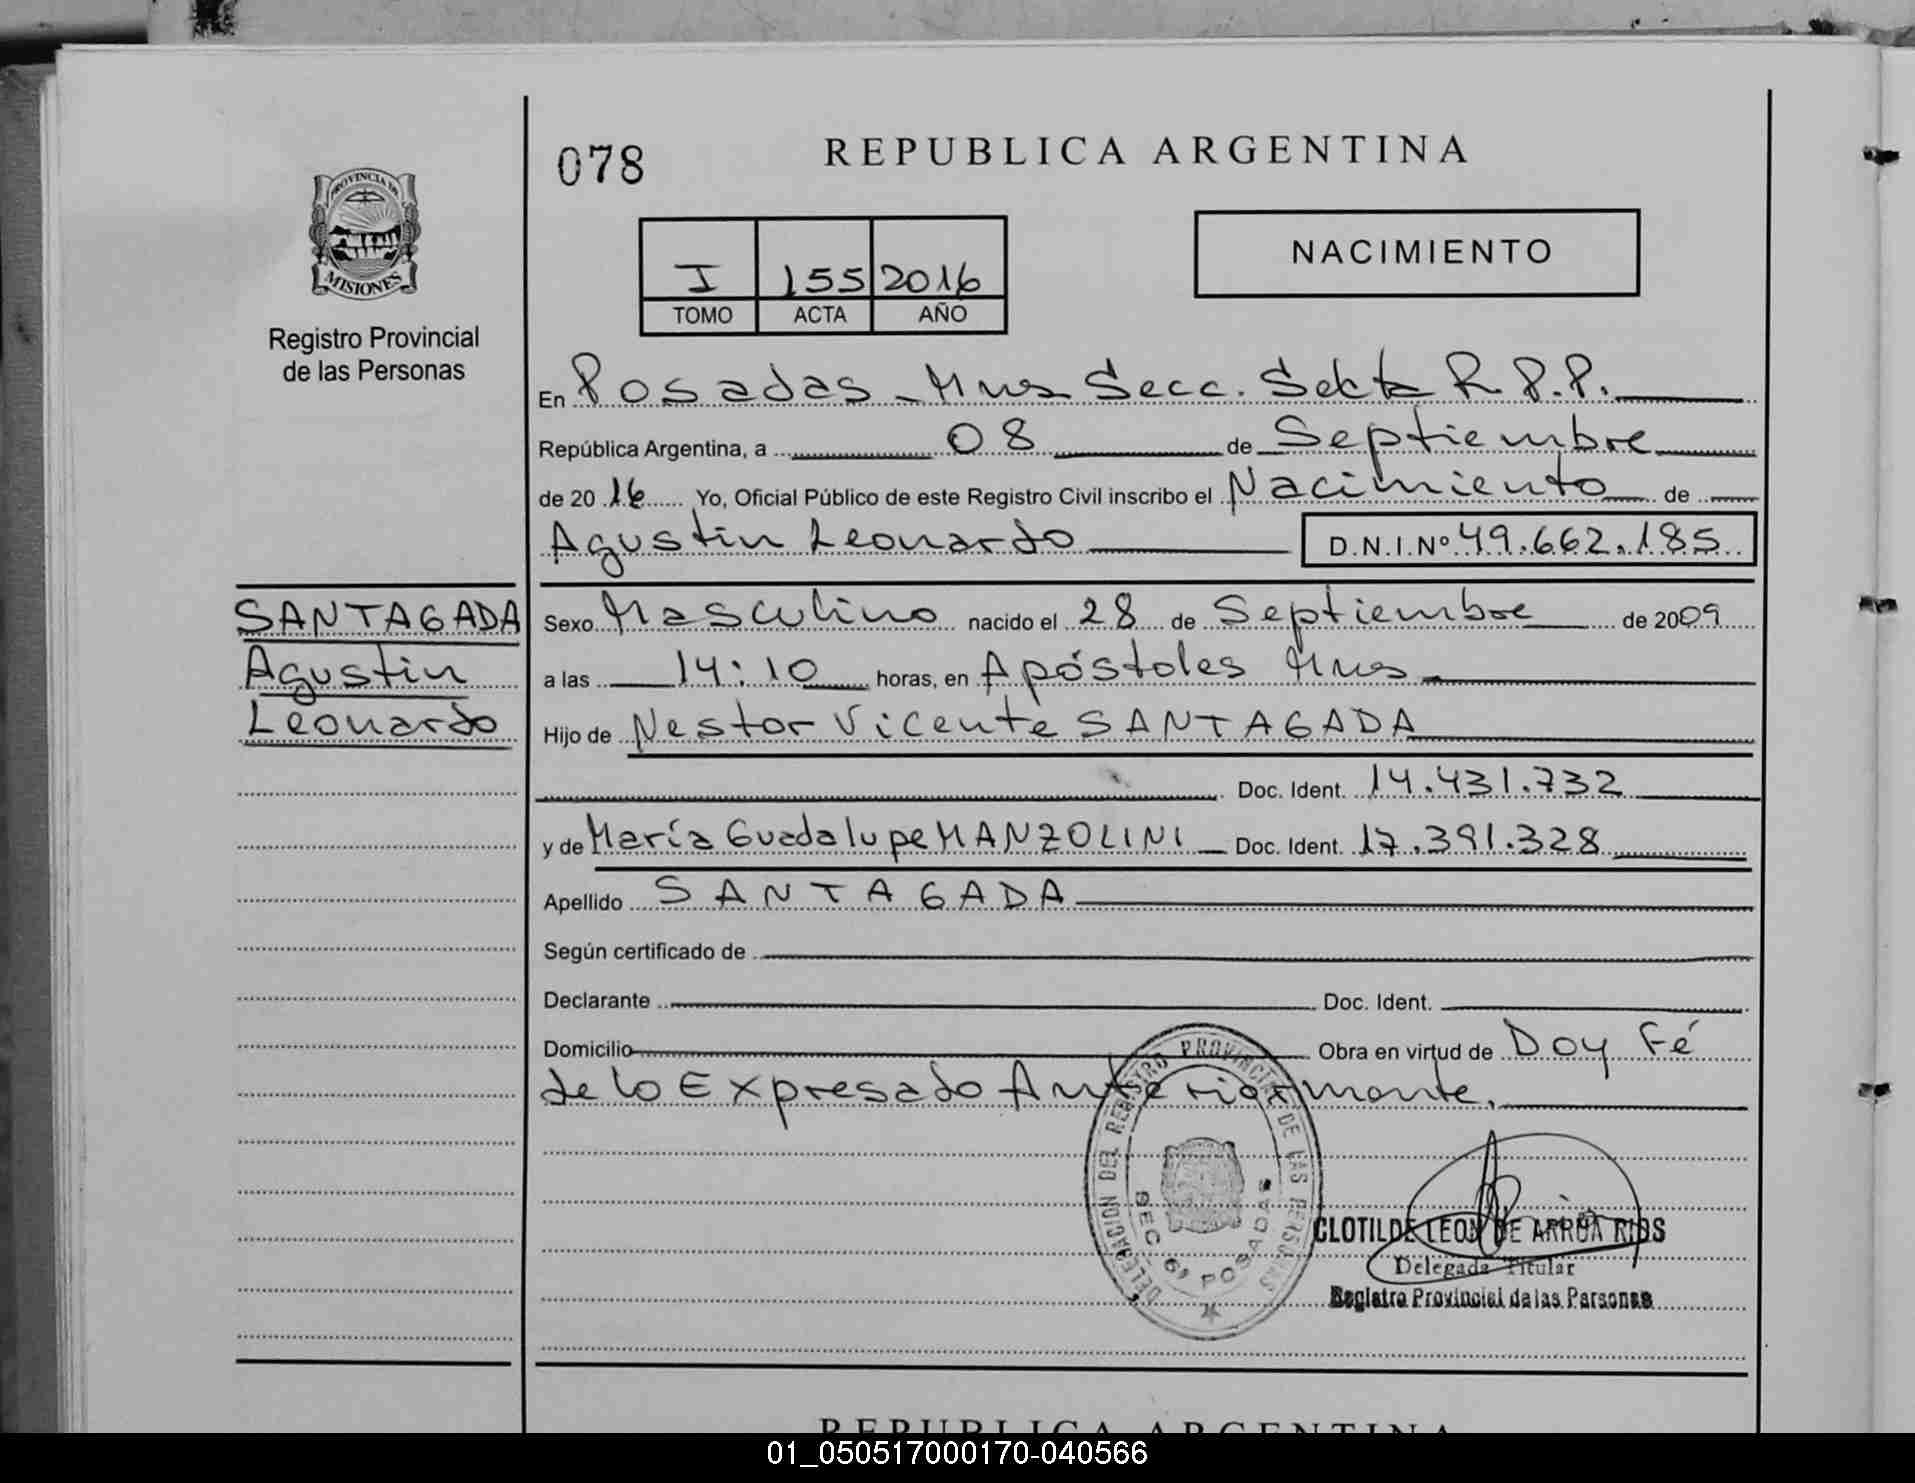 078
REPUBLICA ARGENTINA
PROVINCIA DE
MISIONES
Registro Provincial
de las Personas
I 155 2016
TOMO ACTA AÑO
NACIMIENTO
En Posadas - Mnes Secc. Sekta R.P.P.
República Argentina, a 08 de Septiembre
de 2016 Yo, Oficial Público de este Registro Civil inscribo el Nacimiento de
Agustin Leonardo D.N.I.Nº 49.662.185
SANTAGADA
Agustin
Leonardo
Sexo Masculino nacido el 28 de Septiembre de 2009
a las 14:10 horas, en Apóstoles Mnes
Hijo de Nestor Vicente SANTAGADA
Doc. Ident. 14.431.732
y de María Guadalupe MANZOLINI Doc. Ident. 17.391.328
Apellido SANTAGADA
Según certificado de
Declarante Doc. Ident.
Domicilio Obra en virtud de Doy Fé
de lo Expresado Anteriormente.
DELEGACION DEL REGISTRO PROVINCIAL DE LAS PERSONAS
SEC 6ª POSADAS
CLOTILDE LEON DE ARRUA RIOS
Delegada Titular
Registro Provincial de las Personas
REPUBLICA ARGENTINA
01_050517000170-040566